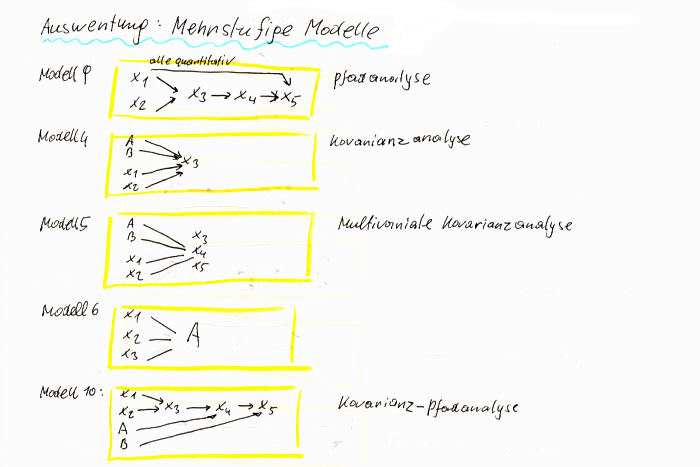 Auswertung: Mehrstufige Modelle
alle quantitativ
Modell 9
x1
x2
x3 → x4 → x5
Pfadanalyse
Modell 4
A
B
x3
x1
x2
Kovarianzanalyse
Modell 5
A
B
x3
x4
x1
x5
x2
Multivariate Kovarianzanalyse
Modell 6
x1
x2
A
x3
Modell 10:
x1
x2 → x3 → x4 → x5
A
B
Kovarianz-Pfadanalyse